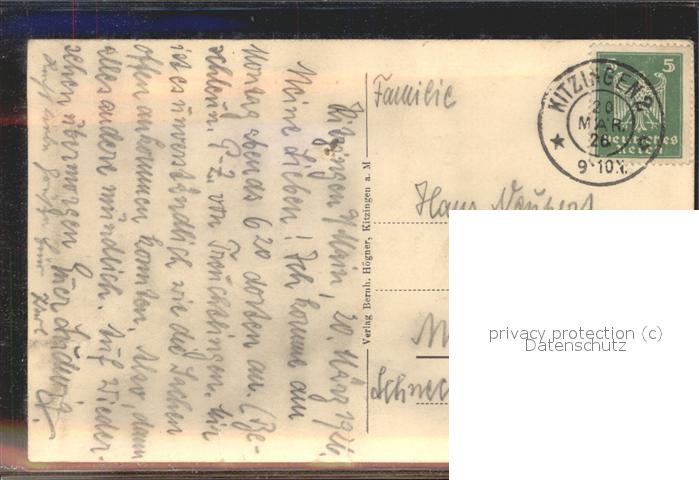 Kitzingen a/Main, 20. März 1926.
Meine Lieben! Ich komme am
Montag abends 6 20 dorten an. (Be-
schleun. P-Z. von Treuchtlingen. Mir
ist es unverständlich wie die Sachen
offen ankommen konnten. Also, dann
alles andere mündlich. Auf Wieder-
sehen übermorgen Euer Ludwig.
Verlag Bernh. Högner, Kitzingen a. M
Familie
Hans Neubert
Schnec
KITZINGEN 2
20
MAR.
26
9-10V.
5
Deutsches
Reich
privacy protection (c)
Datenschutz